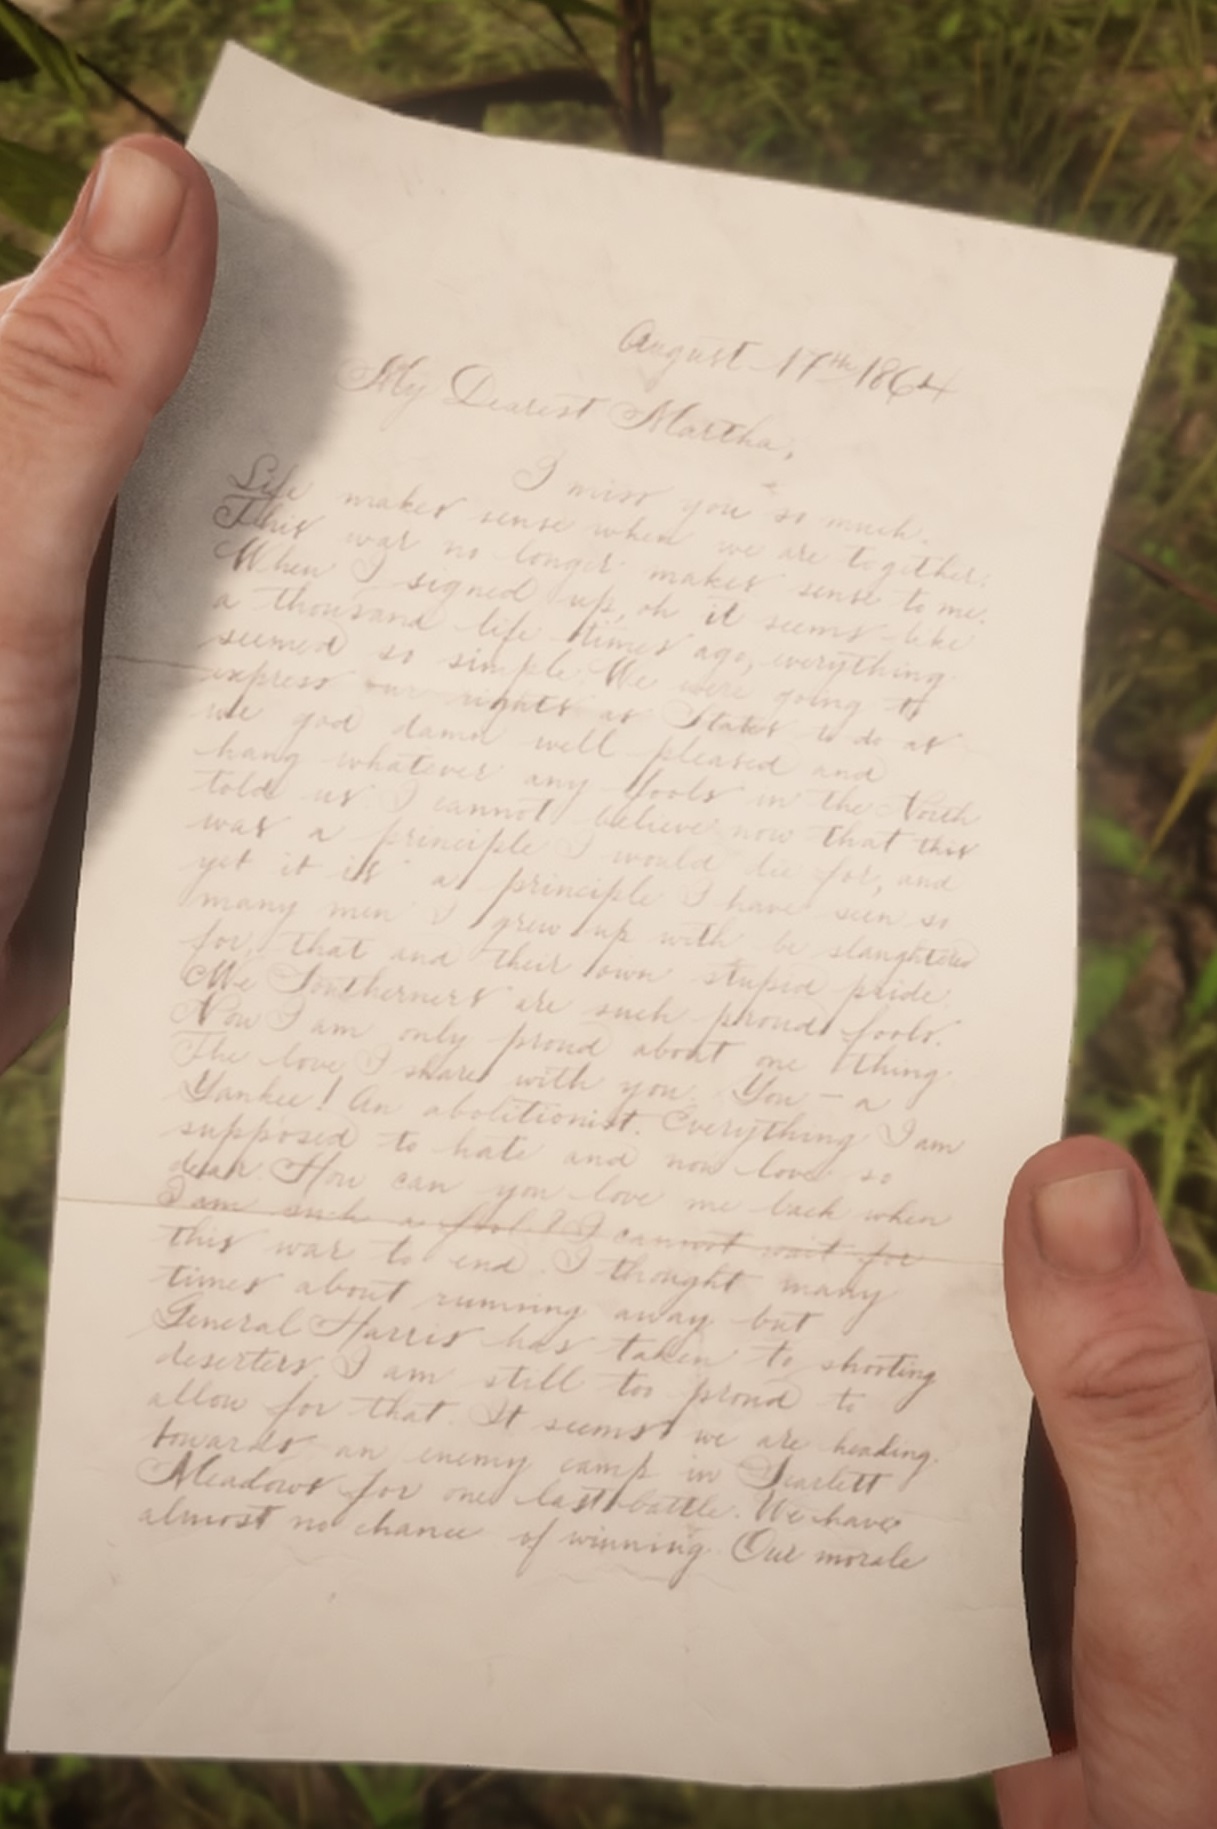 August 17th 1864
My Dearest Martha,
I miss you so much.
Life makes sense when we are together.
This war no longer makes sense to me.
When I signed up, oh it seems like
a thousand life times ago, everything
seemed so simple. We were going to
express our rights as States to do as
we god damn well pleased and
hang whatever any fools in the North
told us. I cannot believe now that this
was a principle I would die for, and
yet it is a principle I have seen so
many men I grew up with be slaughtered
for, that and their own stupid pride.
We Southerners are such proud fools.
Now I am only proud about one thing.
The love I share with you. You - a
Yankee! An abolitionist. Everything I am
supposed to hate and now love so
dear. How can you love me back when
I am such a fool? I cannot wait for
this war to end. I thought many
times about running away but
General Harris has taken to shooting
deserters. I am still too proud to
allow for that. It seems we are heading
towards an enemy camp in Scarlett
Meadows for one last battle. We have
almost no chance of winning. Our morale